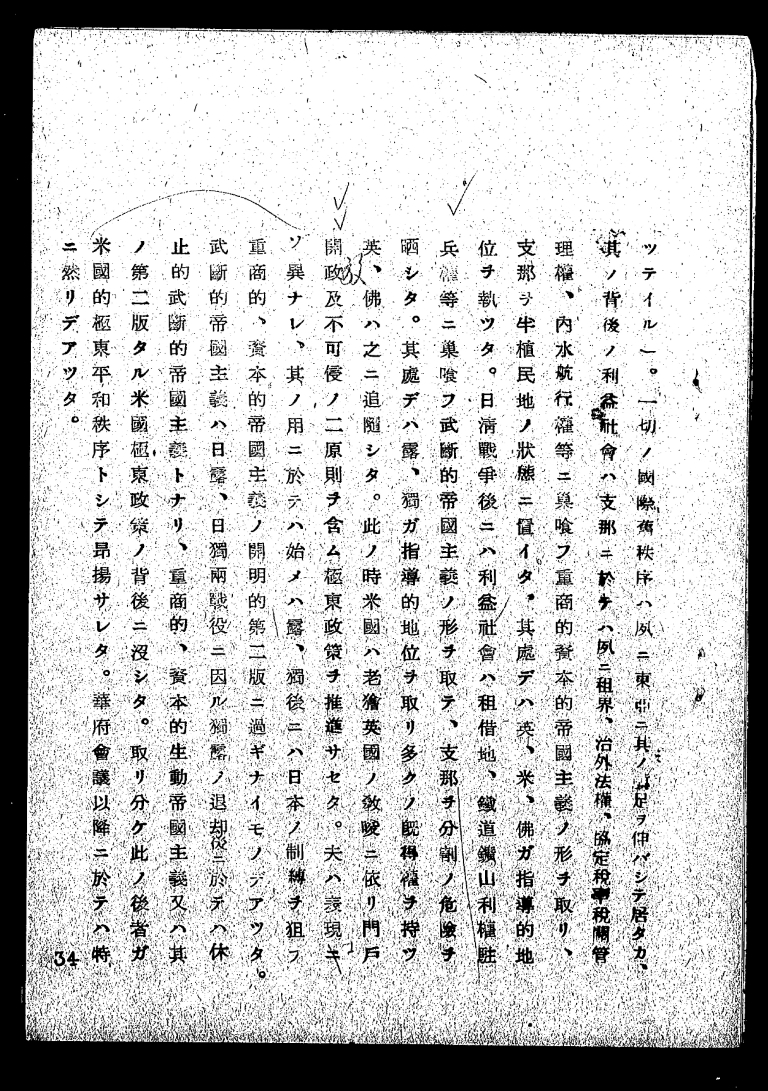 ツテイル一。一切ノ國際舊秩序ハ夙ニ東亞ニ其ノ足ヲ伸バシテ居タカ、
其ノ背後ノ利益社會ハ支那ニ於テハ夙ニ租界、治外法權、協定稅率稅關管
理權、內水航行權等ニ巢喰フ重商的資本的帝國主義ノ形ヲ取リ、
支那ヲ半植民地ノ狀態ニ置イタ。其處デハ英、米、佛ガ指導的地
位ヲ執ツタ。日淸戰爭後ニハ利益社會ハ租借地、鐵道鑛山利權駐
兵權等ニ巢喰フ武斷的帝國主義ノ形ヲ取テ、支那ヲ分割ノ危險ヲ
晒シタ。其處デハ露、獨ガ指導的地位ヲ取リ多クノ旣得權ヲ持ツ
英、佛ハ之ニ追隨シタ。此ノ時米國ハ老獪英國ノ敎唆ニ依リ門戶
開放政及不可侵ノ二原則ヲ含ム極東政策ヲ推進サセタ。夫ハ表現ニ
ソ異ナレ、其ノ用ニ於テハ始メハ露、獨後ニハ日本ノ制縛ヲ狙フ
重商的、資本的帝國主義ノ開明的第二版ニ過ギナイモノデアツタ。
武斷的帝國主義ハ日露、日獨兩戰役ニ因ル獨露ノ退却後ニ於テハ休
止的武斷的帝國主義トナリ、重商的、資本的生動帝國主義又ハ其
ノ第二版タル米國極東政策ノ背後ニ沒シタ。取リ分ケ此ノ後者ガ
米國的極東平和秩序トシテ昂揚サレタ。華府會議以降ニ於テハ特
ニ然リデアツタ。
34